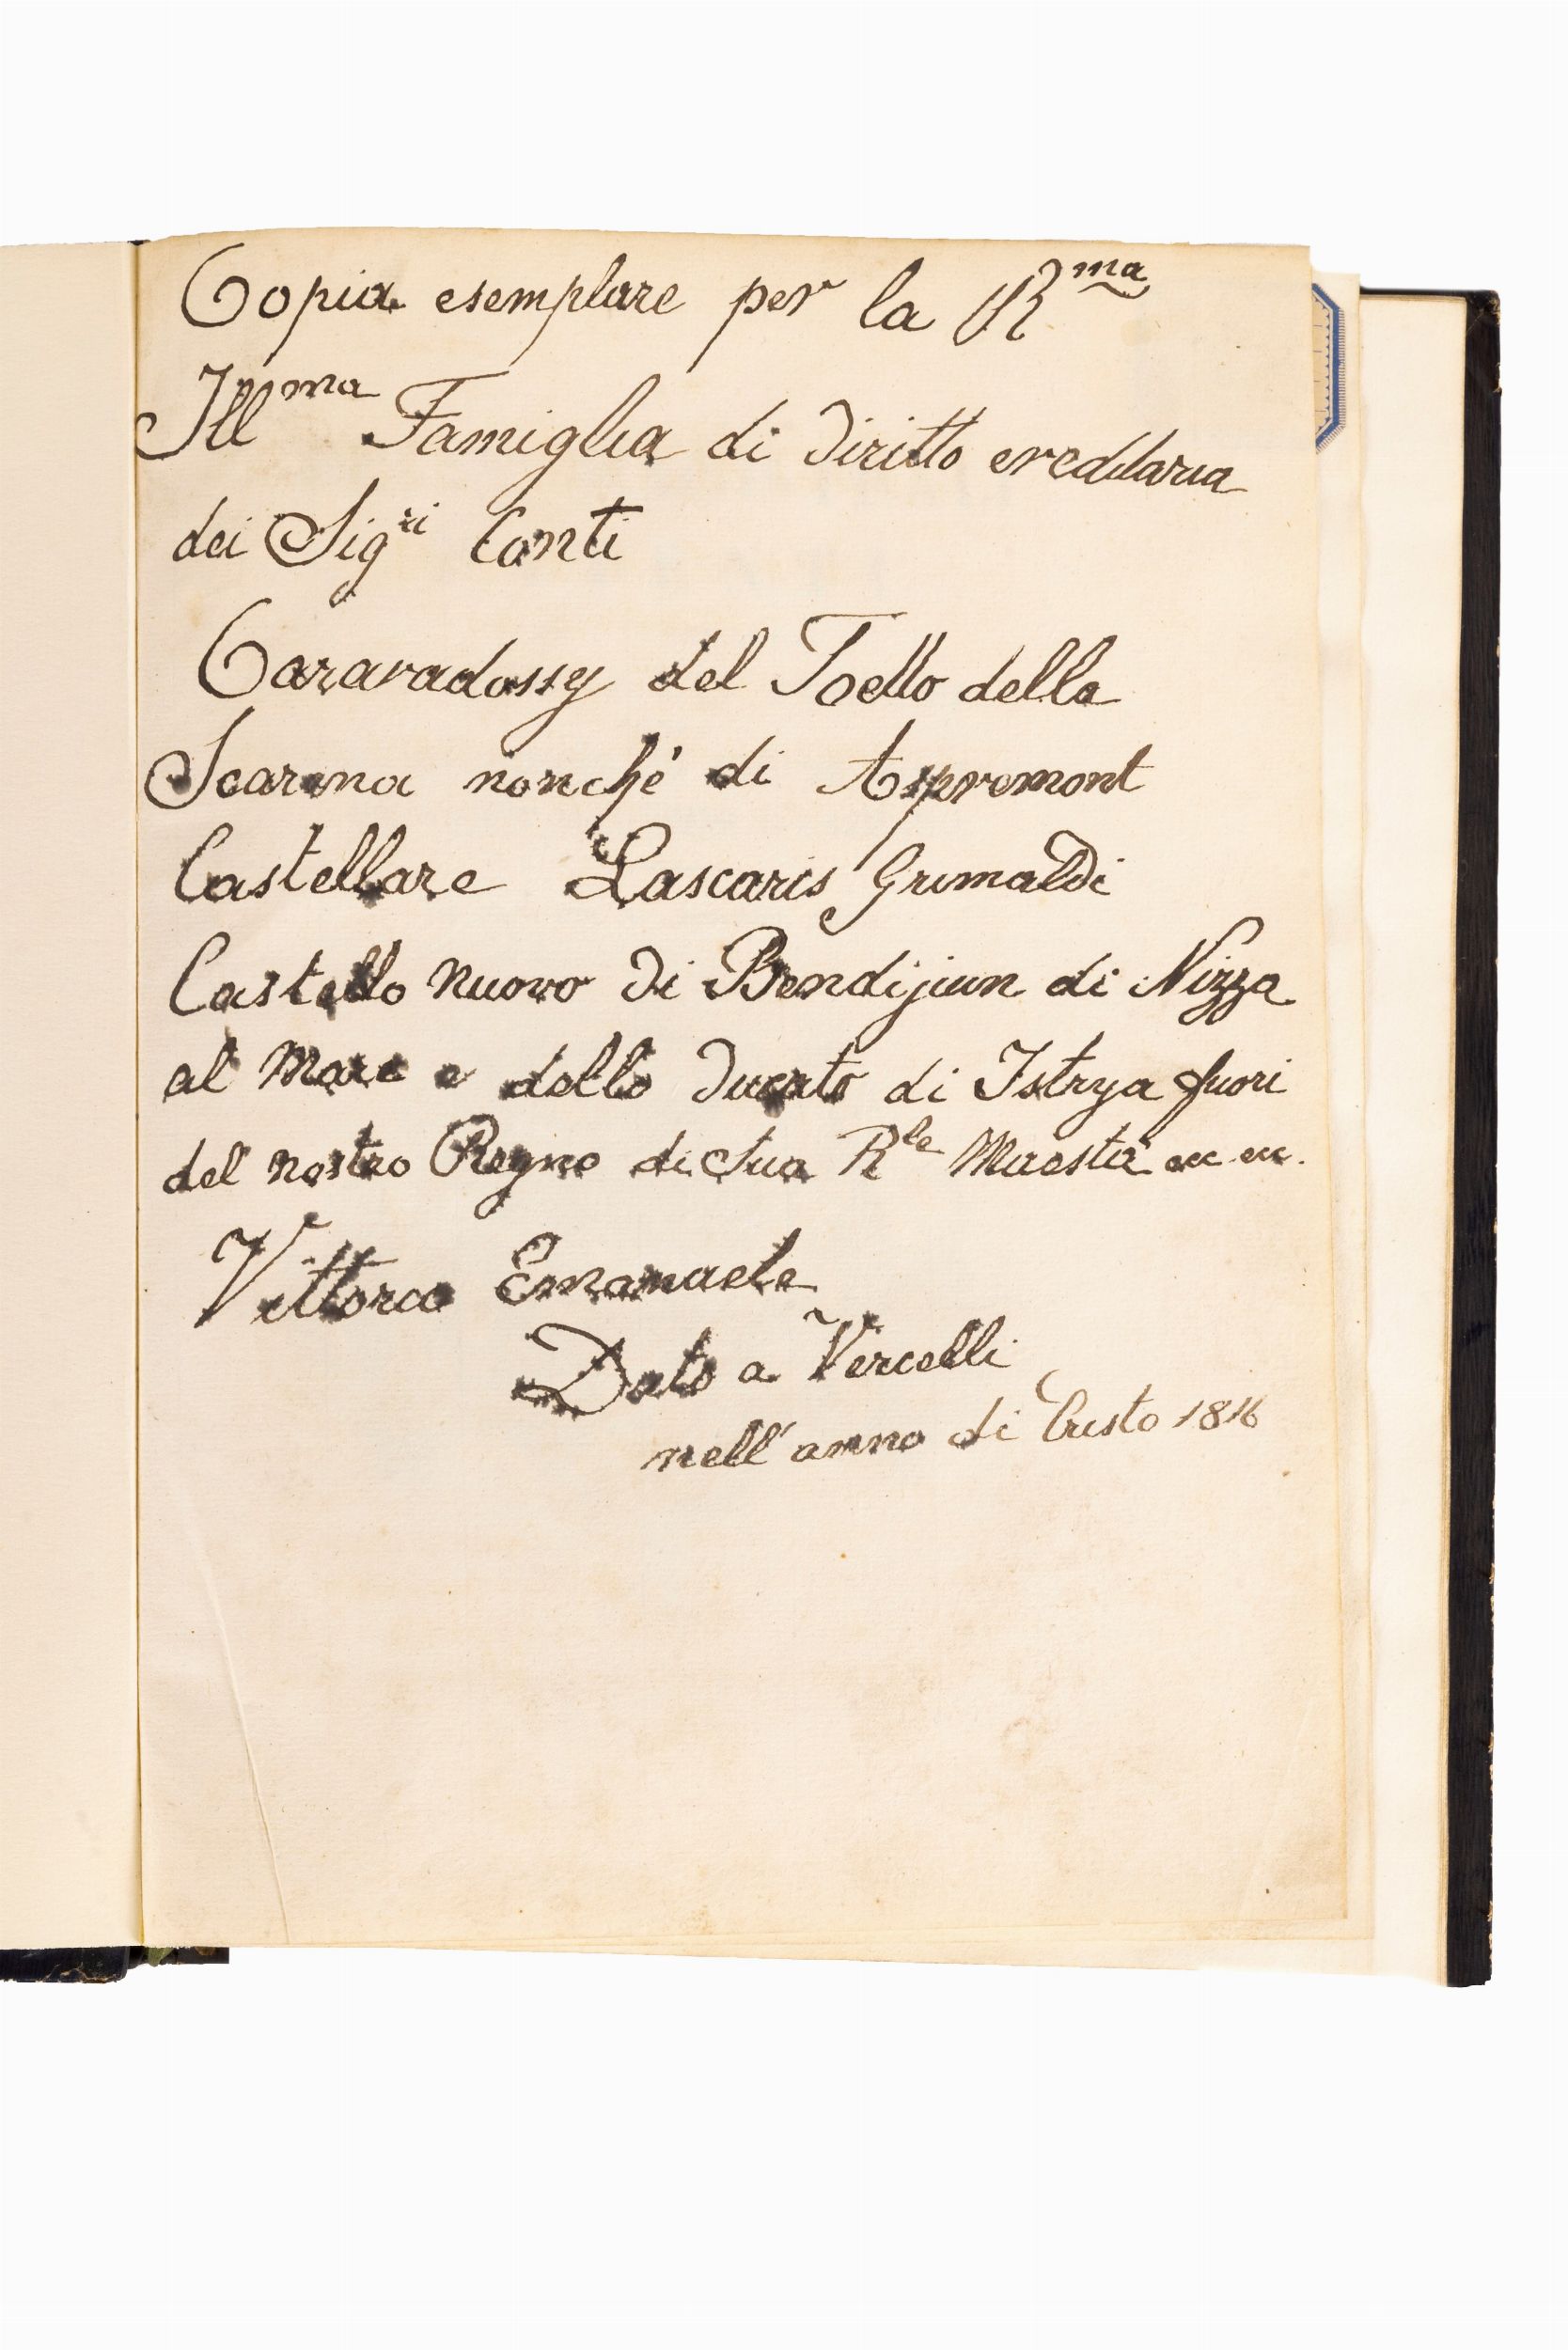 Copia esemplare per la Rma
Illma Famiglia di diritto ereditaria
dei Sigri Conti
Caravadossy del Toetto della
Scarena nonchè di Aspremont
Castellare Lascaris Grimaldi
Castello nuovo di Bendijiun di Nizza
al Mare e dello ducato di Istrya fuori
del nostro Regno di Sua Rle Maestà ecc. ecc.
Vittorio Emanuele
Dato a Vercelli
nell' anno di Cristo 1816